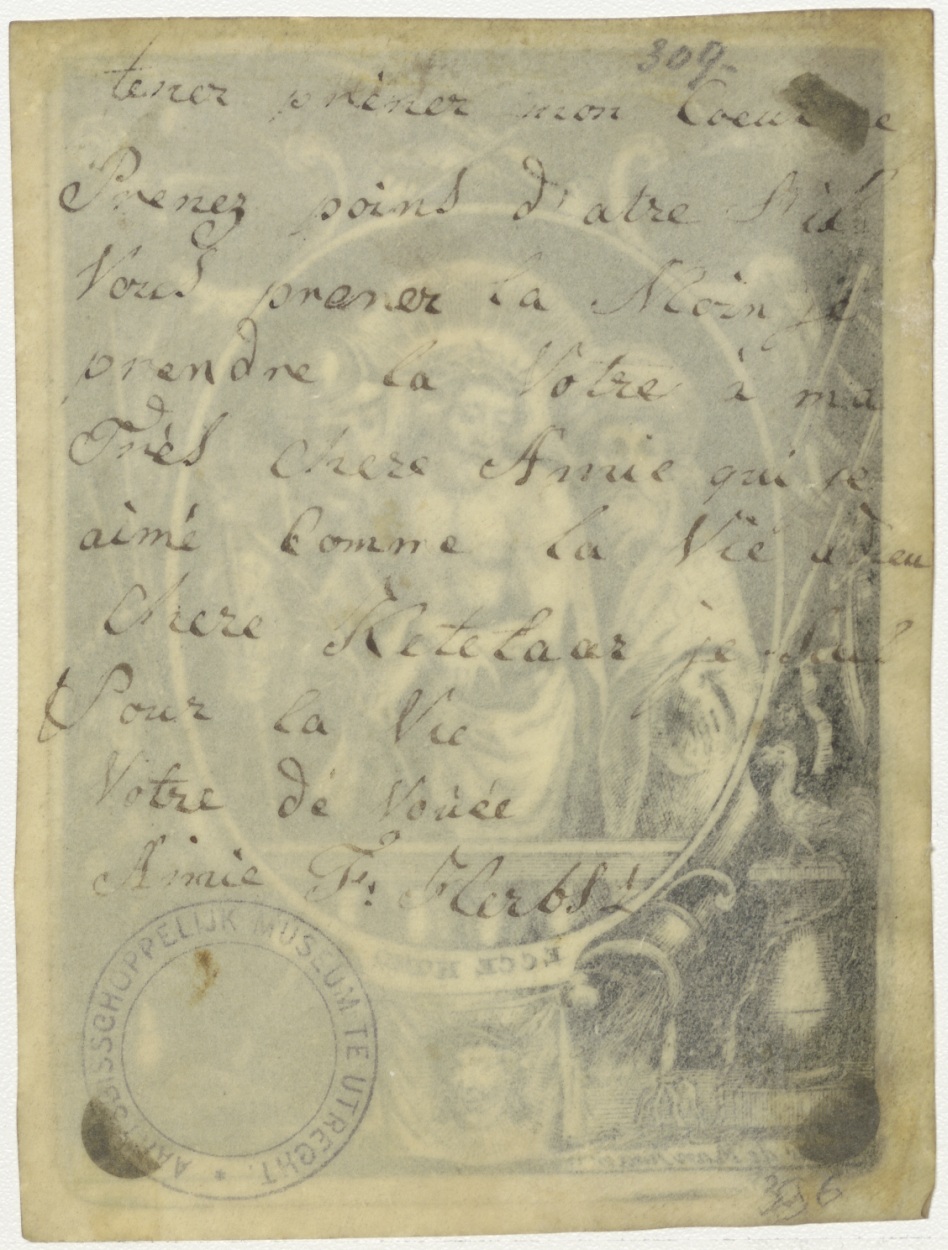 309-
tener prèner mon Coeur
Prenez poins d'atre
Vous prener la Moin je
prendre la Votre à ma
Très chere Amie qui je
aimé Comme la Vië adieu
Chere Ketelaar je suis
Pour la Vie
Votre dé Voüée
Amie Fs Herbst
ECCE HOMO
AARTSBISSCHOPPELIJK MUSEUM TE UTRECHT *